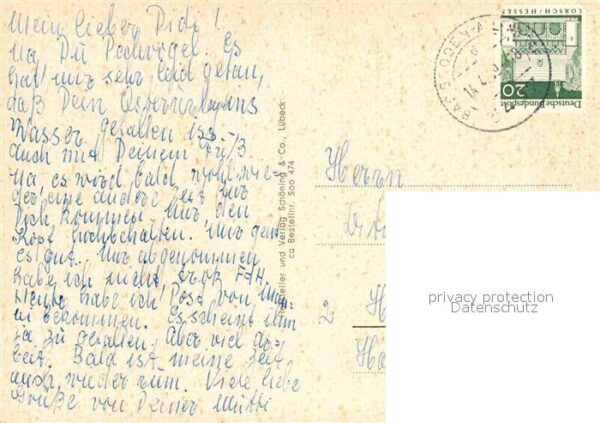 Mein lieber Didi!
Na Du Pechvogel. Es
hat mir sehr leid getan,
daß Dein Osterurlaub ins
Wasser gefallen ist. –
auch mit Deinem Fuß.
Na, es wird bald wohl wie-
der eine andere Zeit für
Dich kommen. Nur den
Kopf hochhalten. Mir geht
es gut. Nur abgenommen
habe ich nicht, trotz FdH.
Heute habe ich Post von
bekommen. Es scheint ihm
ja zu gefallen. Aber viel Ar-
beit. Bald ist meine Zeit
auch wieder rum. Viele liebe
Grüße von Deiner Mutti
Hersteller und Verlag Schöning & Co., Lübeck
ca Bestellnr. Soo 474
LORSCH/HESSEN
20
Deutsche Bundespost
BAD SOODEN-A
Herrn
2 H
privacy protection
Datenschutz